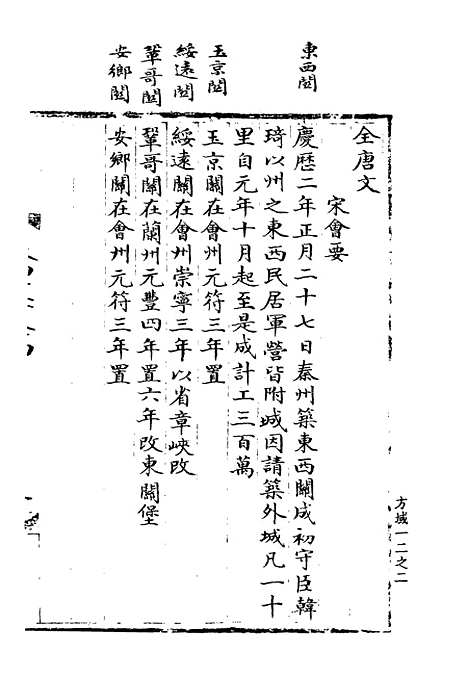 東西関
玉京関
綏遠関
鞏哥関
安鄉関
全唐文
宋會要
慶歷二年正月二十七日秦州築東西關成初守臣韓
琦以州之東西民居軍營皆附城因請築外城凡一十
里自元年十月起至是成計工三百萬
玉京關在會州元符三年置
綏遠關在會州崇寧三年以省章峽改
鞏哥關在蘭州元豐四年置六年改東關堡
安鄉關在會州元符三年置
方域一二之二